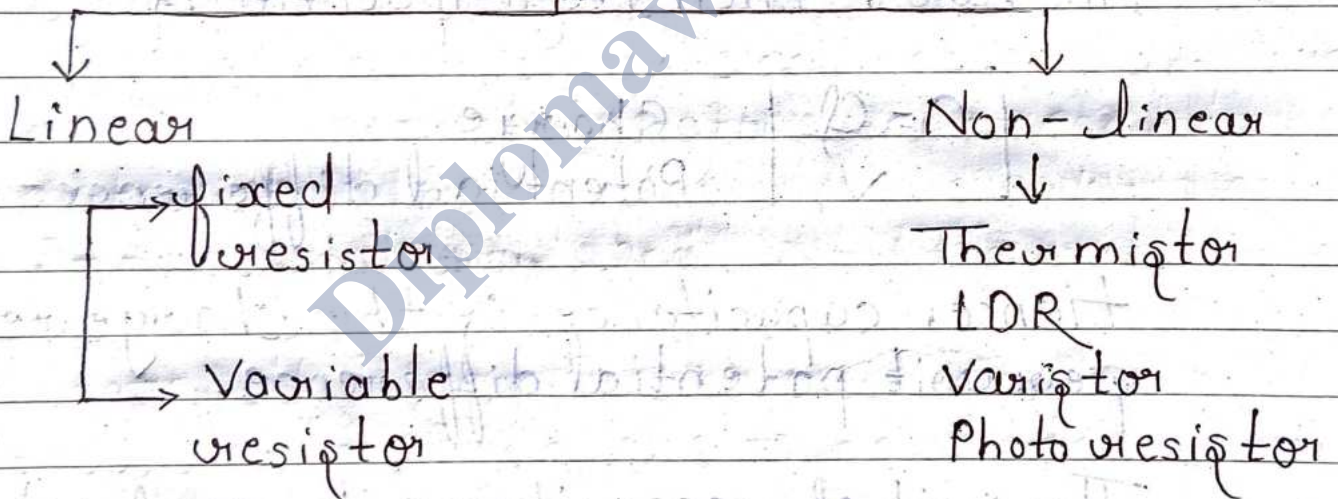 Linear
fixed
resistor
Variable
resistor
Non-linear
Thermistor
LDR
Varistor
Photo resistor
Diplomaw